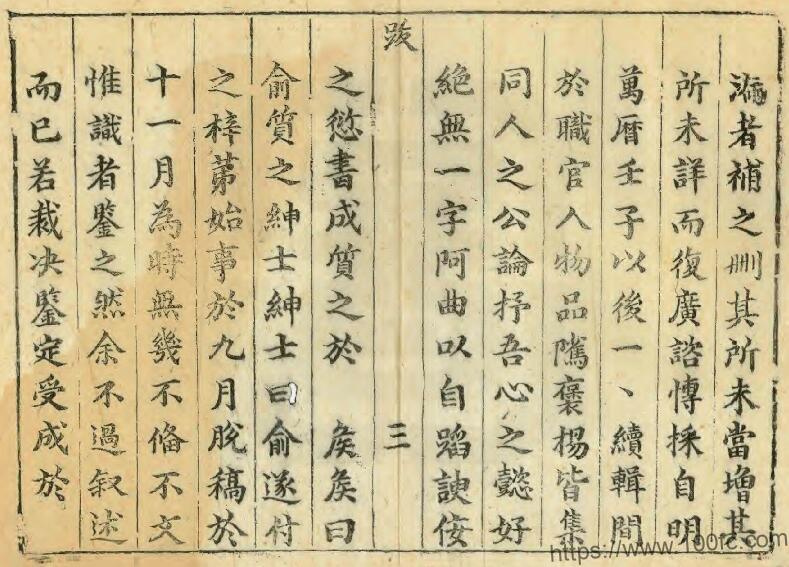 漏者補之刪其所未當增其
所未詳而復廣諮博採自明
萬曆壬子以後一、續輯間
於職官人物品隲褒揚皆集
同人之公論抒吾心之懿好
絕無一字阿曲以自蹈諛佞
跋 三
之愆書成質之於 矦矦曰
俞質之紳士紳士曰俞遂付
之梓苐始事於九月脫稿於
十一月為時無幾不俻不文
惟識者鑒之然余不過叙述
而已若裁决鑒定受成於
https://www.100fc.com